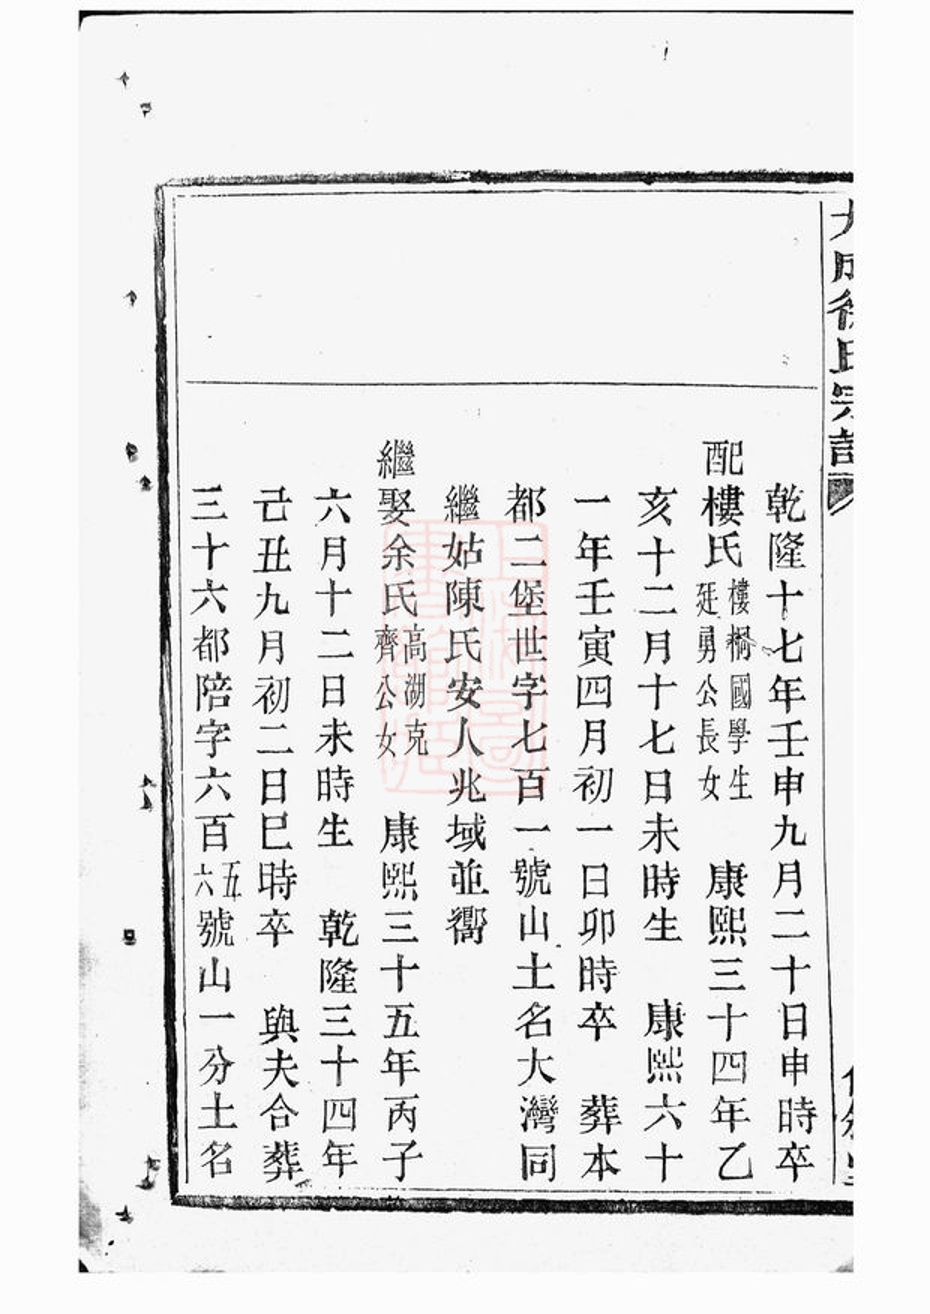 大成徐氏宗譜
乾隆十七年壬申九月二十日申時卒
配樓氏樓桐國學生廷勇公長女　康熙三十四年乙
亥十二月十七日未時生　康熙六十
一年壬寅四月初一日卯時卒　葬本
都二堡世字七百一號山土名大灣同
繼姑陳氏安人兆域並嚮
繼娶余氏高湖克齊公女　康熙三十五年丙子
六月十二日未時生　乾隆三十四年
己丑九月初二日巳時卒　與夫合葬
三十六都陪字六百五六號山一分土名